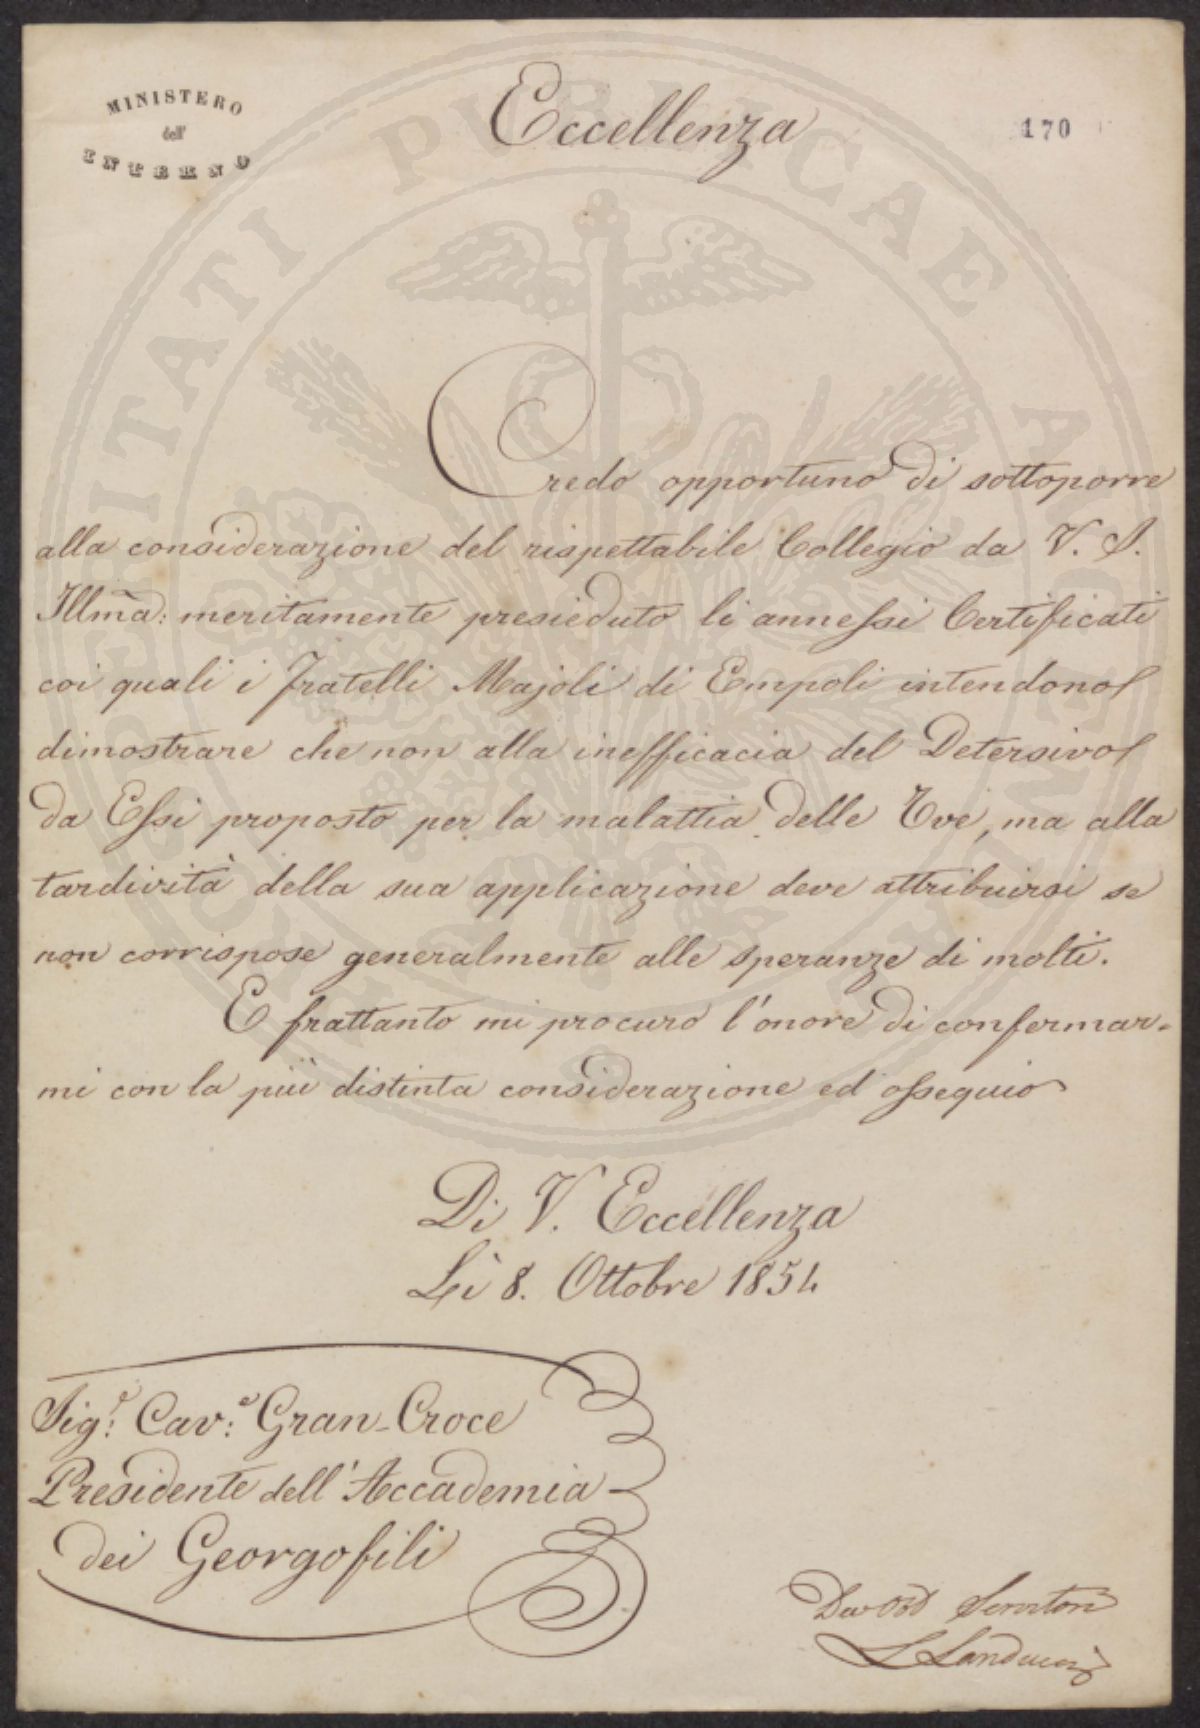 MINISTERO
dell'
INTERNO
Eccellenza
170
Credo opportuno di sottoporre
alla considerazione del rispettabile Collegio da V. S.
Illma: meritamente presieduto li annessi Certificati
coi quali i Fratelli Majoli di Empoli intendono
dimostrare che non alla inefficacia del Detersivo
da Essi proposto per la malattia delle Uve, ma alla
tardività della sua applicazione deve attribuirsi se
non corrispose generalmente alle speranze di molti.
E frattanto mi procuro l'onore di confermar-
mi con la più distinta considerazione ed ossequio
Di V. Eccellenza
Lì 8. Ottobre 1854
Sigr: Cave: Gran-Croce
Presidente dell'Accademia
dei Georgofili
Dev Obb Servitore
L Landucci
PROSPERITATI PUBLICAE AUGENDAE